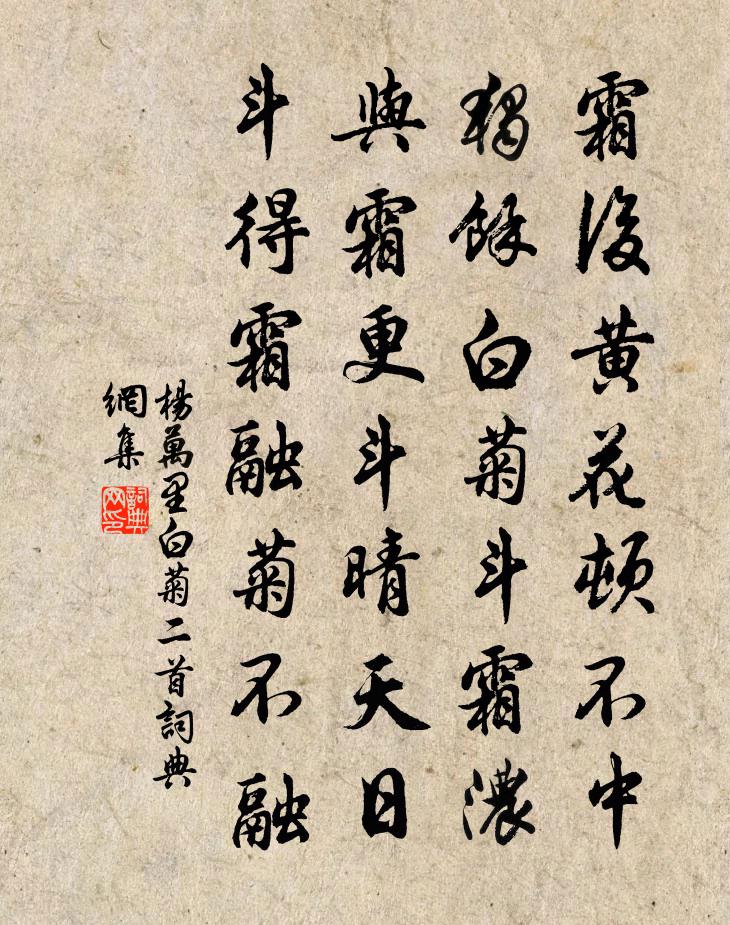 霜後黄花頓不中
獨餘白菊斗霜濃
與霜更斗晴天日
斗得霜融菊不融
楊萬里白菊二首詞典
網集
詞典網印